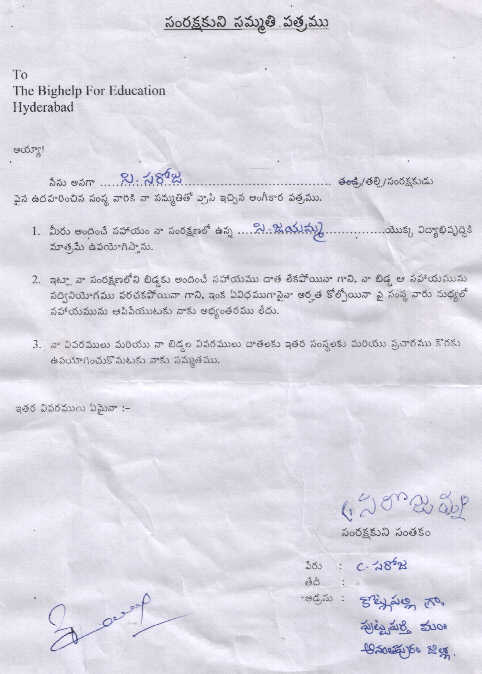 సంరక్షకుని సమ్మతి పత్రము
To
The Bighelp For Education
Hyderabad
అయ్యా!
నేను అనగా ...సి. సరోజ... తండ్రి/తల్లి/సంరక్షకుడు
పైన ఉదహరించిన సంస్థ వారికి నా సమ్మతితో వ్రాసి ఇచ్చిన అంగీకార పత్రము.
1. మీరు అందించే సహాయం నా సంరక్షణలో ఉన్న ...సి. జయమ్మ...యొక్క విద్యాభివృద్ధికి
మాత్రమే ఉపయోగిస్తాను.
2. ఇట్లా నా సంరక్షణలోని బిడ్డకు అందించే సహాయము దాత లేకపోయినా గాని, నా బిడ్డ ఆ సహాయమును
సద్వినియోగము పరచకపోయినా గాని, ఇంక ఏవిధముగానైనా అర్హత కోల్పోయినా పై సంస్థ వారు మధ్యలో
సహాయమును ఆపివేయుటకు నాకు అభ్యంతరము లేదు.
3. నా వివరములు మరియు నా బిడ్డల వివరములు దాతలకు ఇతర సంస్థలకు మరియు ప్రచారము కొరకు
ఉపయోగించుకొనుటకు నాకు సమ్మతము.
ఇతర వివరములు ఏమైనా :-
సంరక్షకుని సంతకం
పేరు : C. సరోజ
తేది :
అడ్రసు : కొట్లపల్లి గ్రా,
పుట్టపర్తి మం
అనంతపురం జిల్లా.